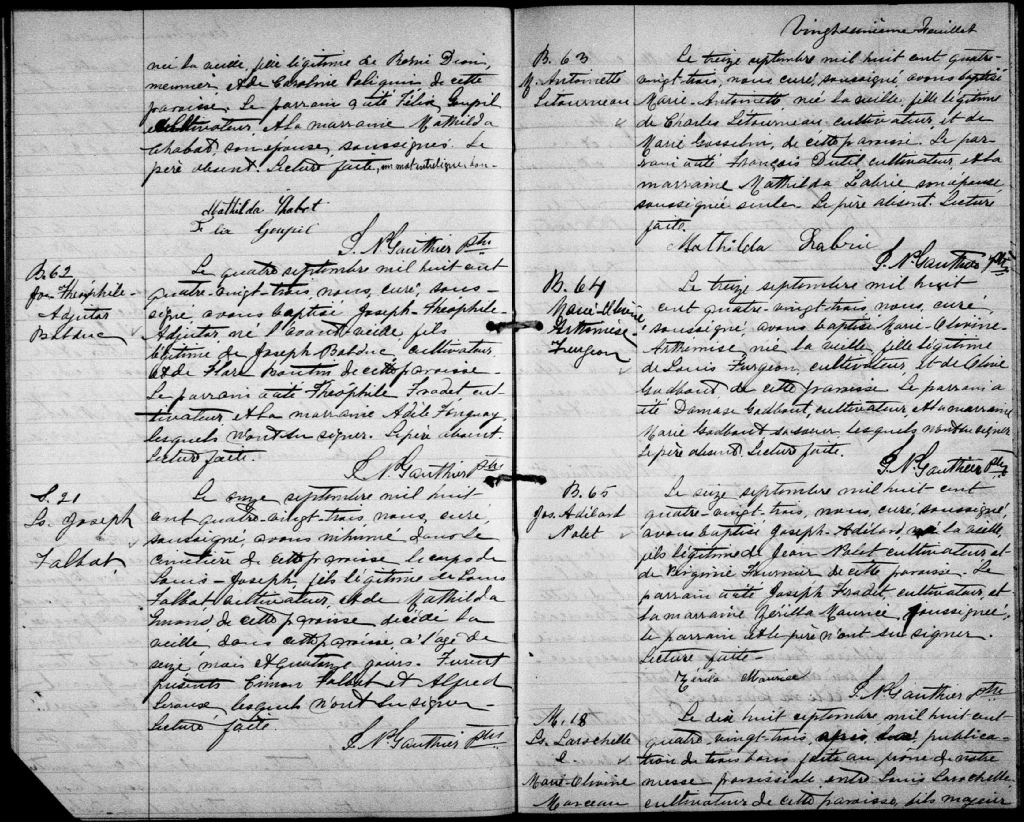 née la veille, fille légitime de Rémi Dion,
meunier, et de Caroline Paliquin de cette
paroisse. Le parrain a été Félix Goupil
cultivateur, et la marraine Mathilda
Chabot son épouse, soussignés. Le
père absent. Lecture faite,
Mathilda Chabot
Goupil
J. N. Gauthier Ptre
B. 62
Jos. Théophile-
Adjutor
Bolduc
Le quatre septembre mil huit cent
quatre-vingt-trois, nous, curé, sous-
signé avons baptisé Joseph-Théophile-
Adjutor né l'avant veille, fils
légitime de Joseph Bolduc, cultivateur,
et de Flore Boutin de cette paroisse.
Le parrain a été Théophile Fradet, cul-
tivateur et la marraine Adèle Tanguay,
lesquels n'ont su signer. Le père absent.
Lecture faite.
J. N. Gauthier Ptre
S. 21
Ls. Joseph
Talbot
Le onze septembre mil huit
cent quatre-vingt-trois, nous, curé,
soussigné, avons inhumé dans le
cimetière de cette paroisse le corps de
Louis-Joseph, fils légitime de Louis
Talbot cultivateur, et de Mathilda
Emond de cette paroisse décédé la
veille, dans cette paroisse, à l'âge de
seize mois et quatorze jours. Furent
présents Simon Talbot et Alfred
lesquels n'ont su signer.
Lecture faite.
J. N. Gauthier Ptre
Vingt deuxième Feuillet
B. 63
M. Antoinette
Létourneau
Le treize septembre mil huit cent quatre-
vingt-trois, nous curé, soussigné avons baptisé
Marie-Antoinette née la veille, fille légitime
de Charles Létourneau cultivateur, et de
Marie Gosselin, de cette paroisse. Le par-
rain a été François Dutil cultivateur, et la
marraine Mathilda Labrie son épouse
soussignée seule. Le père absent. Lecture
faite.
Mathilda Labrie
J. N. Gauthier Ptre
B. 64
Marie-Olivine
Arthémise
Furgeon
Le treize septembre mil huit
cent quatre-vingt-trois nous, curé,
soussigné avons baptisé Marie-Olivine-
Arthémise née la veille, fille légitime
de Louis Furgeon, cultivateur, et de Olive
Godbout, de cette paroisse. Le parrain a
été Damase Godbout, cultivateur, et la marraine
Marie Godbout sa soeur, lesquels n'ont su signer.
Le père absent. Lecture faite.
J. N. Gauthier Ptre
B. 65
Jos. Adélard
Nolet
Le seize septembre mil huit cent
quatre-vingt-trois, nous, curé, soussigné,
avons baptisé Joseph-Adélard né la veille,
fils légitime de Jean Nolet cultivateur et
de Virginie Fournier de cette paroisse. Le
parrain a été Joseph Fradet cultivateur, et
la marraine Zérilla Maurice, soussignée,
le parrain et le père n'ont su signer.
Lecture faite.
Zérila Maurice
J. N. Gauthier Ptre
M. 18
Ls. Larochelle
&
Marie-Olivine
Marceau
Le dix huit septembre mil huit cent
quatre-vingt-trois, après publica-
tion de trois bans faite au prône de notre
messe paroissiale entre Louis Larochelle
cultivateur de cette paroisse, fils majeur